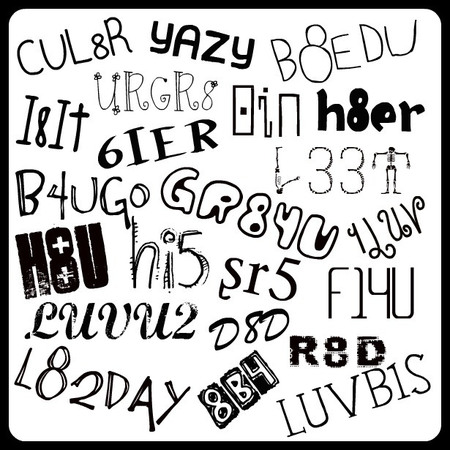 CUL8R YAZY B8EDU
URGR8 0in h8er
I8It 6IER L33T
B4UGo GR84U 1LUV
H8U hi5 sr5 F14U
LUVU2 D8D R8D
L82DAY 8B4 LUVBIS